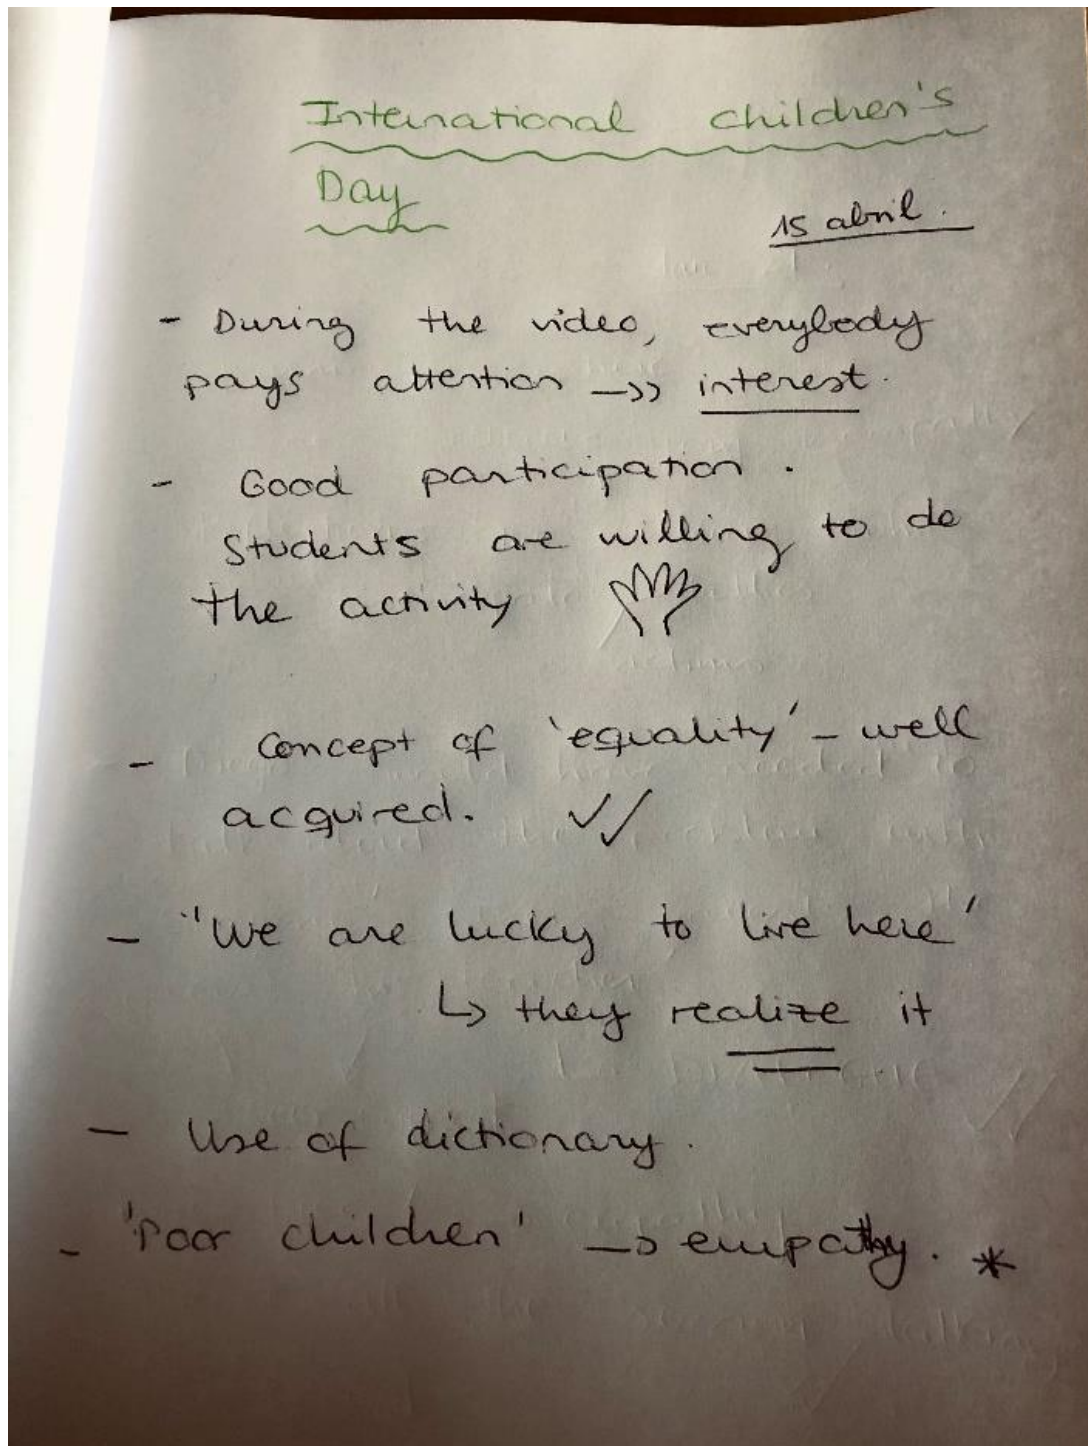 International children's
Day
15 abril.
- During the video, everybody
pays attention ->> interest.
- Good participation.
Students are willing to do
the activity
- Concept of 'equality' - well
acquired. ✓✓
- "We are lucky to live here'
↳ they realize it
- Use of dictionary.
- 'Poor children' -> empathy. *